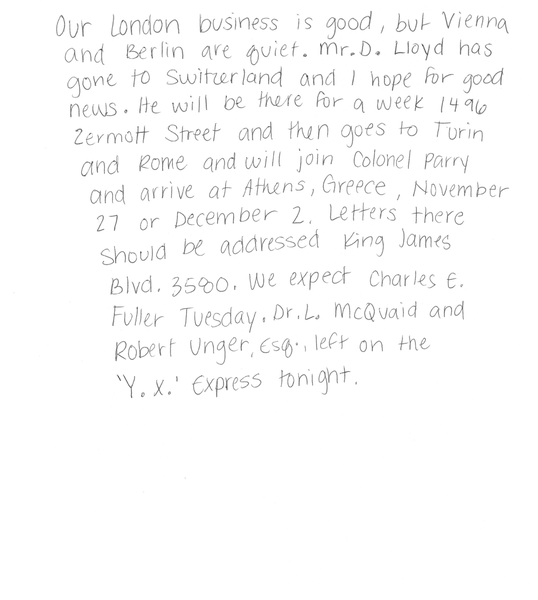 Our London business is good, but Vienna
and Berlin are quiet. Mr. D. Lloyd has
gone to Switzerland and I hope for good
news. He will be there for a week 1496
Zermott Street and then goes to Turin
and Rome and will join Colonel Parry
and arrive at Athens, Greece, November
27 or December 2. Letters there
should be addressed King James
Blvd. 3580. We expect Charles E.
Fuller Tuesday. Dr. L. McQuaid and
Robert Unger, Esq., left on the
'Y. X.' Express tonight.